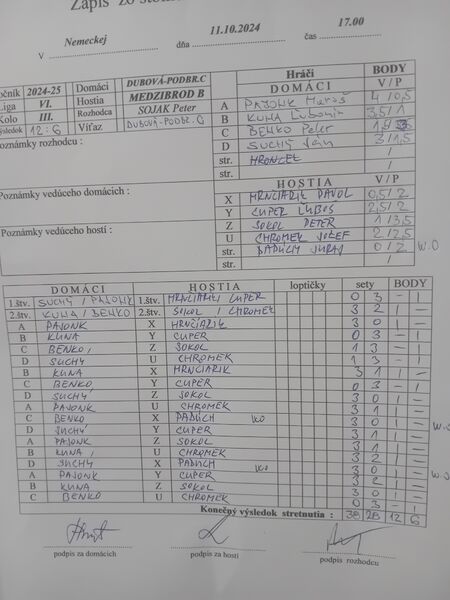 Zápis zo
V Nemeckej dňa 11.10.2024 čas 17.00
očník 2024-25 Domáci DUBOVÁ-PODBR.C
Liga VI. Hostia MEDZIBROD B
Kolo III. Rozhodca SOJAK Peter
ýsledok 12:6 Víťaz DUBOVÁ-PODBR. C
oznámky rozhodcu :
Poznámky vedúceho domácich :
Poznámky vedúceho hostí :
Hráči BODY
DOMÁCI V / P
A PAJONK 4 / 0,5
B KUNA ĽUBOMÍR 3,5 / 1
C BENKO Peter
D SUCHÝ Ján 3 / 1,5
str. HRONČEK /
str. /
HOSTIA V / P
X HRNČIARIK PAVOL 0,5 / 2
Y CUPER ĽUBOŠ 2,5 / 2
Z SOKOL PETER 1 / 3,5
U CHROMEK JOZEF 2 / 2,5
str. PADÚCH JURAJ 0 / 2 W.O
str. /
DOMÁCI HOSTIA loptičky sety BODY
1.štv. SUCHÝ / PAJONK 1.štv. HRNČIARIK / CUPER 0 3 – 1
2.štv. KUNA / BENKO 2.štv. SOKOL / CHROMEK 3 2 1 –
A PAJONK X HRNČIARIK 3 0 1 –
B KUNA Y CUPER 0 3 – 1
C BENKO Z SOKOL 1 3 – 1
D SUCHÝ U CHROMEK 1 3 – 1
B KUNA X HRNČIARIK 3 1 1 –
C BENKO Y CUPER 0 3 – 1
D SUCHÝ Z SOKOL 3 0 1 –
A PAJONK U CHROMEK 3 1 1 –
C BENKO X PADÚCH 3 0 1 –
D SUCHÝ Y CUPER 3 1 1 –
A PAJONK Z SOKOL 3 1 1 –
B KUNA U CHROMEK 3 2 1 –
D SUCHÝ X PADÚCH 3 0 1 –
A PAJONK Y CUPER 3 2 1 –
B KUNA Z SOKOL 3 0 1 –
C BENKO U CHROMEK 0 3 – 1
Konečný výsledok stretnutia : 38 28 12 6
podpis za domácich podpis za hostí podpis rozhodcu